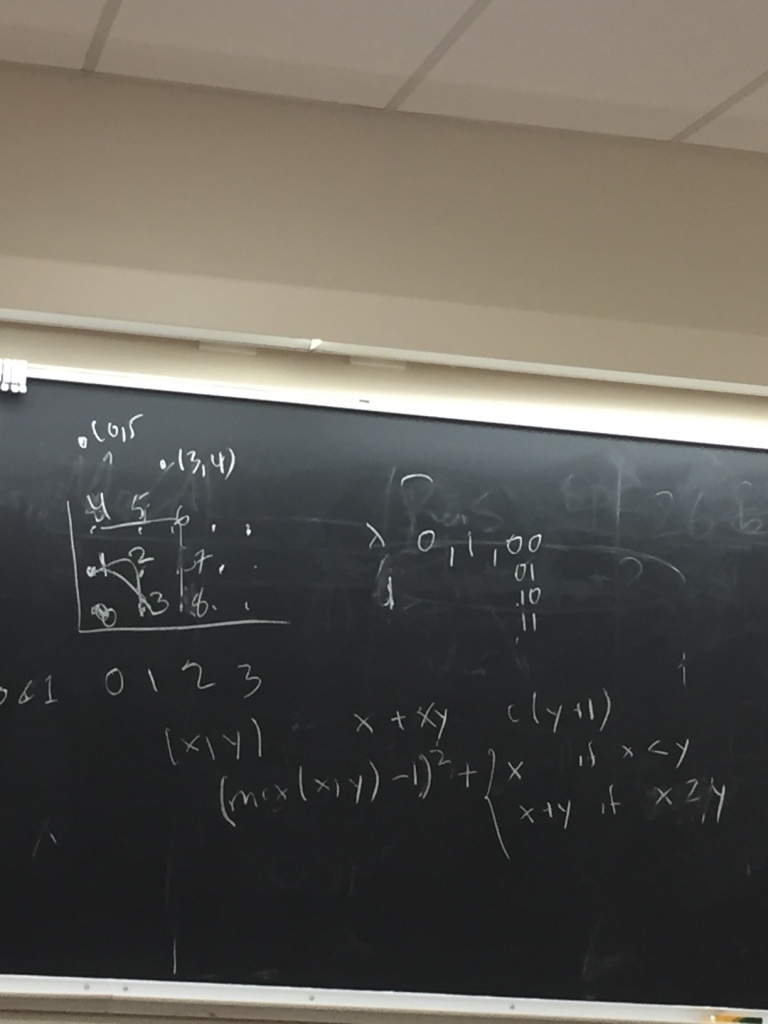 (0,5
(3,4)
4 5 6 . .
1 2 7 . .
0 3 8 . .
λ 0, 1, 00
01
10
11
0 1 2 3
(x,y) x + xy c(y+1)
(max(x,y) -1)² + { x if x < y
x+y if x ≥ y